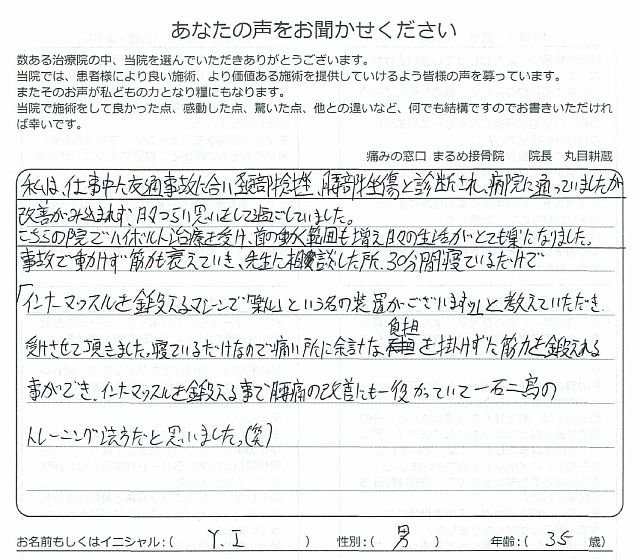 あなたの声をお聞かせください
数ある治療院の中、当院を選んでいただきありがとうございます。
当院では、患者様により良い施術、より価値ある施術を提供していけるよう皆様の声を募っています。
またそのお声が私どもの力となり糧にもなります。
当院で施術をして良かった点、感動した点、驚いた点、他との違いなど、何でも結構ですのでお書きいただけれ
ば幸いです。
痛みの窓口 まるめ接骨院 院長 丸目耕蔵
私は、仕事中に交通事故に合い頚部捻挫、腰部挫傷と診断され、病院に通っていましたが
改善が見込まれず、日々つらい思いをして過ごしていました。
こちらの院でハイボルト治療を受け、首の動く範囲も増え日々の生活がとても楽になりました。
事故で動けず筋力も衰えていき、先生に相談した所、30分間寝ているだけで
「インナーマッスルを鍛えるマシーンで「楽トレ」という名の装置がございます。」と教えていただき、
受けさせて頂きました。寝ているだけなので痛い所に余計な負担を掛けずに筋力を鍛える
事ができ、インナーマッスルを鍛える事で腰痛の改善にも一役かっていて一石二鳥の
トレーニング法方だと思いました。(笑)
お名前もしくはイニシャル:( Y.I ) 性別:( 男 ) 年齢:( 35 歳)